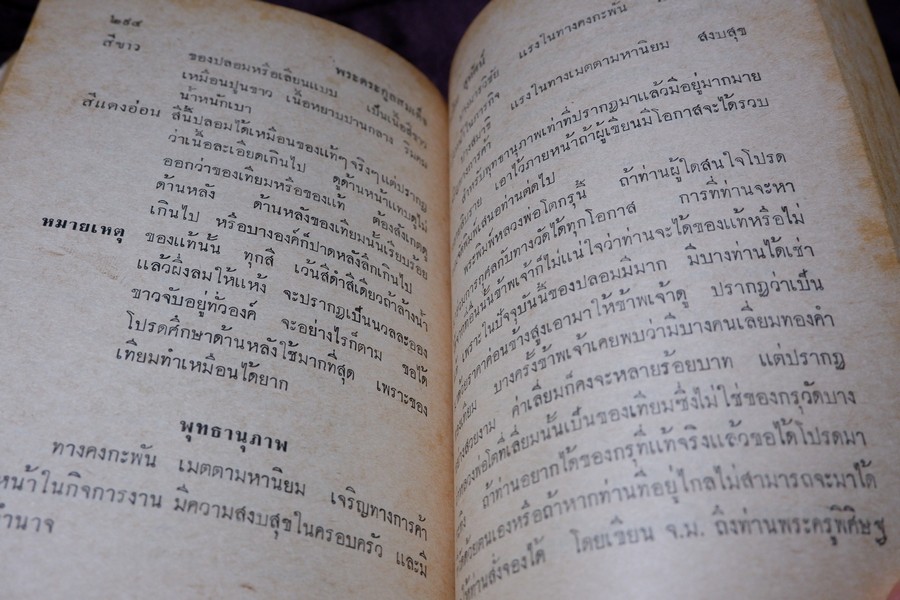 ๒๙๔ พระตระกูลสมเด็จ
สีขาว ของปลอมหรือเลียนแบบ เป็นเนื้อสีขาว
เหมือนปูนขาว เนื้อหยาบปานกลาง ริมคม
น้ำหนักเบา
สีแดงอ่อน สีนี้ปลอมได้เหมือนของแท้ๆ จริงๆ แต่ปรากฏ
ว่าเนื้อละเอียดเกินไป ดูด้านหน้าแทบดูไม่
ออกว่าของเทียมหรือของแท้ ต้องสังเกตดู
ด้านหลัง ด้านหลังของเทียมนั้นเรียบร้อย
เกินไป หรือบางองค์ก็ปาดหลังลึกเกินไป
หมายเหตุ ของแท้นั้น ทุกสี เว้นสีดำสีเดียวถ้าล้างน้ำ
แล้วผึ่งลมให้แห้ง จะปรากฏเป็นนวลละออง
ขาวจับอยู่ทั่วองค์ จะอย่างไรก็ตาม ขอได้
โปรดศึกษาด้านหลังใช้มากที่สุด เพราะของ
เทียมทำเหมือนได้ยาก
พุทธานุภาพ
ทางคงกะพัน เมตตามหานิยม เจริญทางการค้า
หน้าในกิจการงาน มีความสงบสุขในครอบครัว และมี
อำนาจ
แรงในทางคงกะพัน
แรงในทางเมตตามหานิยม สงบสุข
ทางการค้า
สำหรับพุทธานุภาพเท่าที่ปรากฏมาแล้วมีอยู่มากมาย
เอาไว้ภายหน้าถ้าผู้เขียนมีโอกาสจะได้รวบ
เสนอท่านต่อไป
พระพิมพ์หลวงพ่อโตกรุนี้ ถ้าท่านผู้ใดสนใจโปรด
การกุศลกับทางวัดได้ทุกโอกาส การที่ท่านจะหา
ที่อื่นนั้นข้าพเจ้าก็ไม่แน่ใจว่าท่านจะได้ของแท้หรือไม่
เพราะในปัจจุบันนี้ของปลอมมีมาก มีบางท่านได้เช่า
ด้วยราคาค่อนข้างสูงเอามาให้ข้าพเจ้าดู ปรากฏว่าเป็น
เทียม บางครั้งข้าพเจ้าเคยพบว่ามีบางคนเลี่ยมทองคำ
สวยงาม ค่าเลี่ยมก็คงจะหลายร้อยบาท แต่ปรากฏ
หลวงพ่อโตที่เลี่ยมนั้นเป็นของเทียมซึ่งไม่ใช่ของกรุวัดบาง
ถ้าท่านอยากได้ของกรุที่แท้จริงแล้วขอได้โปรดมา
ด้วยตนเองหรือถ้าหากท่านที่อยู่ไกลไม่สามารถจะมาได้
ท่านสั่งจองได้ โดยเขียน จ.ม. ถึงท่านพระครูพิศิษฐ